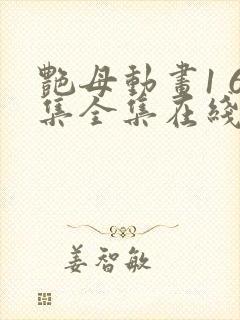 艷母動畫16
集全集在綫
姜智敏